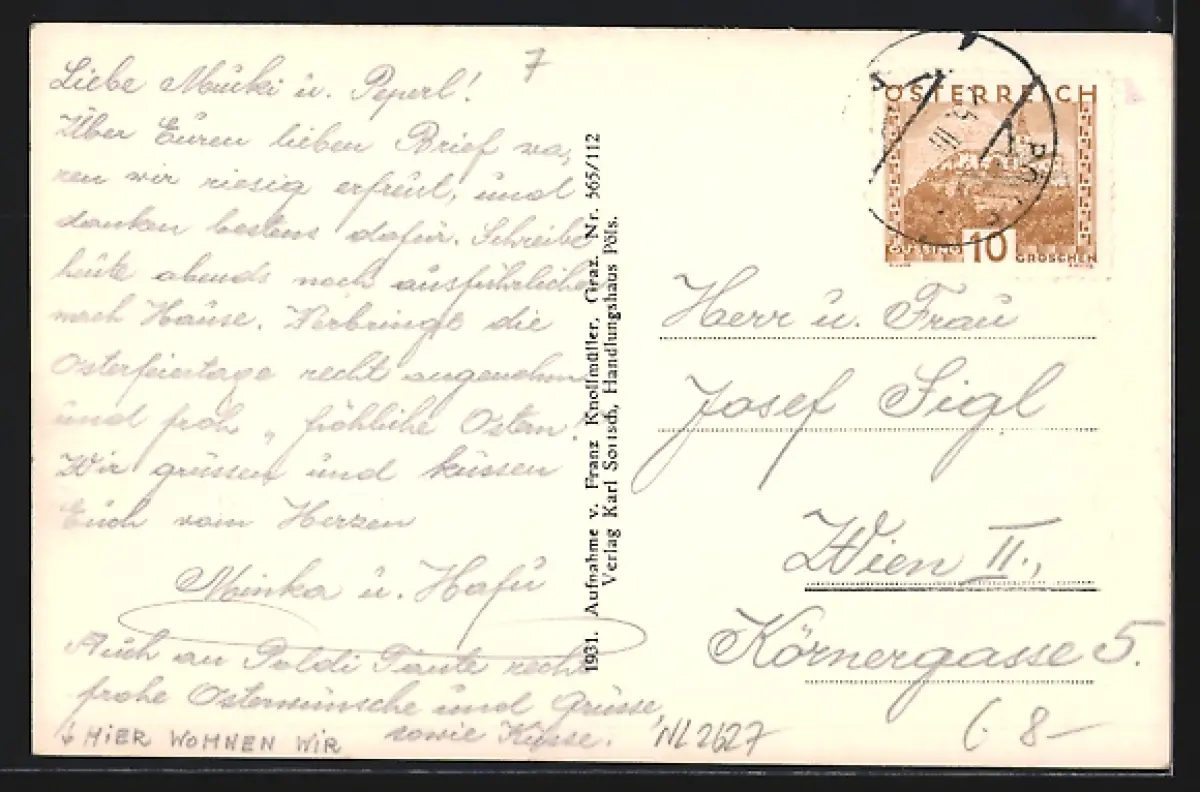 7
Liebe Mucki u. Peperl!
Über Euren lieben Brief wa,
ren wir riesig erfreut, und
danken bestens dafür. Schreibe
heute abends noch ausführlicher
nach Hause. Verbringt die
Osterfeiertage recht angenehm
und froh „fröhliche Ostern"
Wir grüssen und küssen
Euch vom Herzen
Minka u. Hafu
Auch an Poldi Tante recht
frohe Osterwünsche und Grüsse,
sowie Küsse.
↳ HIER WOHNEN WIR
1931. Aufnahme v. Franz Knollmüller, Graz. Nr. 565/112
Verlag Karl Handlungshaus Pöls.
ÖSTERREICH
GÜSSING 10 GROSCHEN
Herr u. Frau
Josef Sigl
Wien II.,
Körnergasse 5.
NL2627
8-